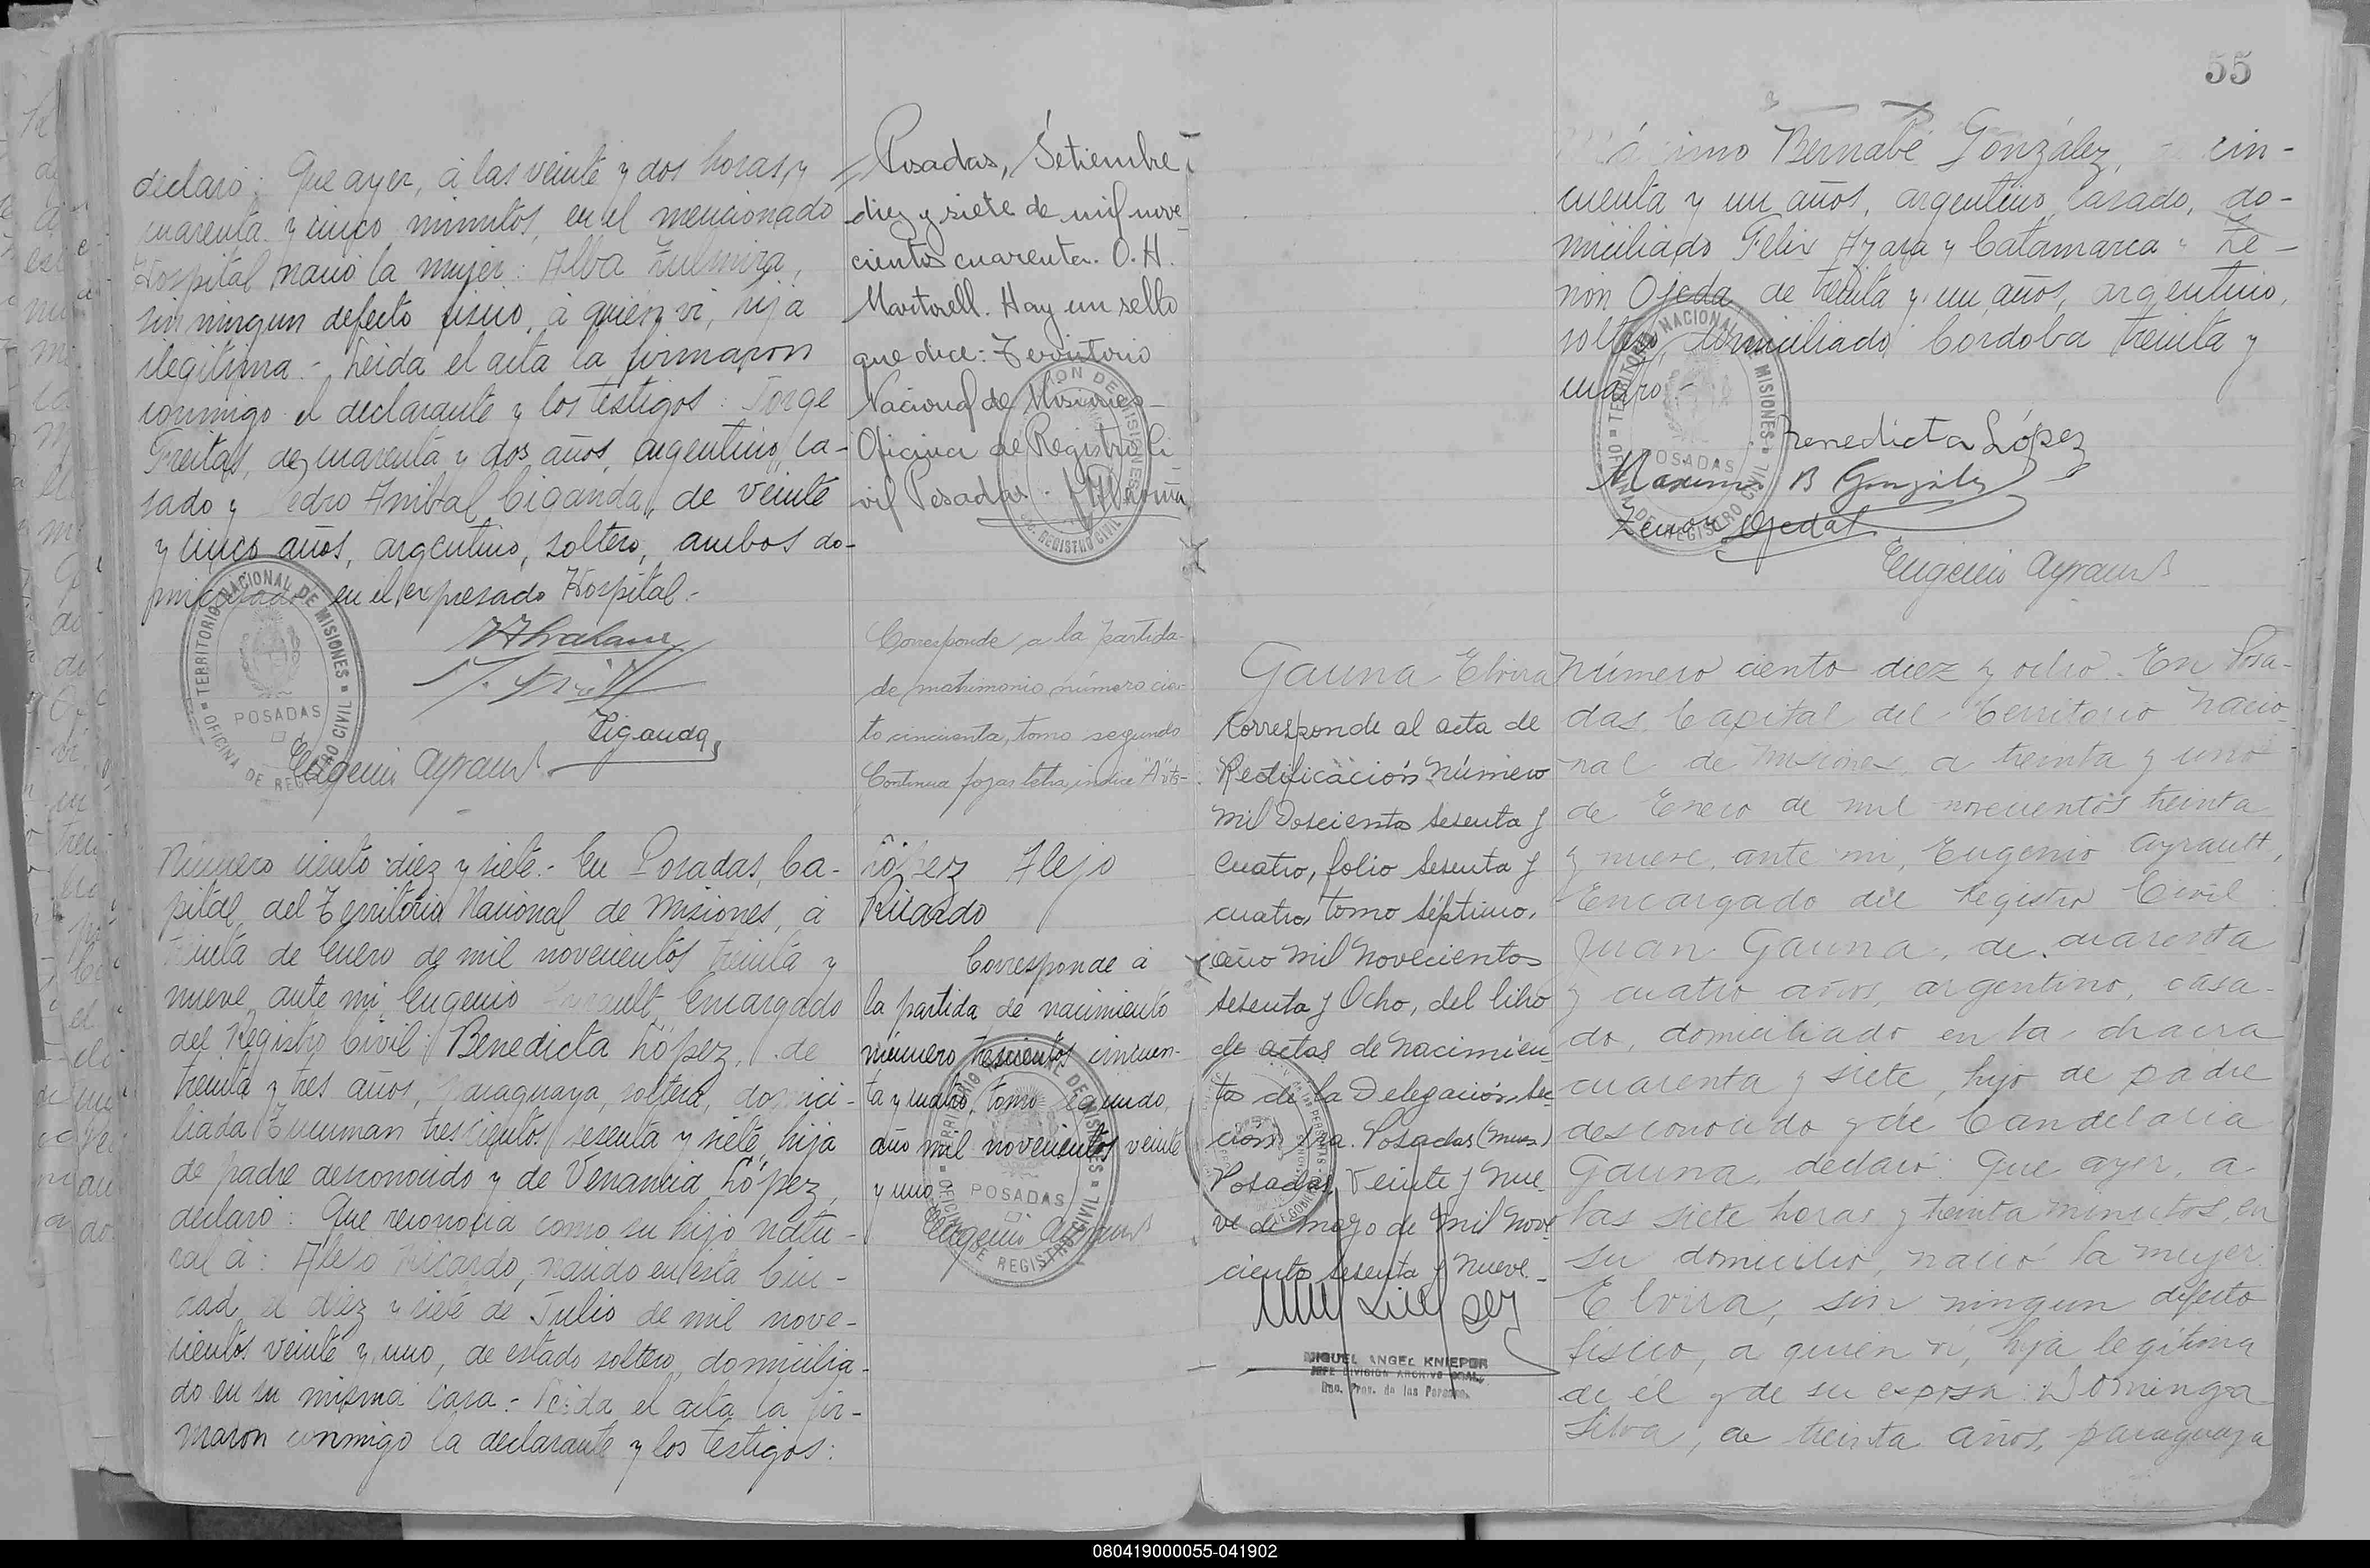 declaró: Que ayer, á las veinte y dos horas, y
cuarenta y cinco minutos, en el mencionado
Hospital nació la mujer: Alba Zulmira,
sin ningun defecto fisico, á quien vi, hija
ilegítima.- Leida el acta la firmaron
conmigo el declarante y los testigos: Jorge
Freitas, de cuarenta y dos años, argentino, ca-
sado y Pedro Anibal Ciganda, de veinte
y cinco años, argentino, soltero, ambos do-
miciliados en el expresado Hospital.-
Ciganda
Eugenio Ayrault
TERRITORIO NACIONAL DE MISIONES
POSADAS
OFICINA DE REGISTRO CIVIL
Número ciento diez y siete.- En Posadas, Ca-
pital del Territorio Nacional de Misiones, á
treinta de Enero de mil novecientos treinta y
nueve, ante mi, Eugenio Ayrault, Encargado
del Registro Civil: Benedicta López, de
treinta y tres años, paraguaya, soltera, domici-
liada Tucuman trescientos sesenta y siete, hija
de padre desconocido y de Venancia López,
declaró: Que reconocía como su hijo natu-
ral á: Alejo Ricardo, nacido en esta Ciu-
dad, el diez y siete de Julio de mil nove-
cientos veinte y uno, de estado soltero, domicilia-
do en su misma casa.- Leida el acta la fir-
maron conmigo la declarante y los testigos:
Posadas, Setiembre
diez y siete de mil nove-
cientos cuarenta. O. H.
Martorell. Hay un sello
que dice: Territorio
Nacional de Misiones-
Oficina de Registro Ci-
vil Posadas.
Corresponde a la partida
de matrimonio número cien-
to cincuenta, tomo segundo
Continua fojas letra, indice "A"
López Alejo
Ricardo
Corresponde á
la partida de nacimiento
número trescientos cincuen-
ta y cuatro, tomo segundo,
año mil novecientos veinte
y uno.
Eugenio Ayrault
POSADAS
Gauna Elvira
Corresponde al acta de
Rectificación Número
mil Doscientos Sesenta y
Cuatro, folio Sesenta y
cuatro, tomo séptimo,
año mil Novecientos
Sesenta y Ocho, del libro
de actas de Nacimien-
tos de la Delegación, Sec-
ción 1ra. Posadas (Mnes.)
Posadas, Veinte y Nue-
ve de mayo de mil Nove-
cientos Sesenta y Nueve.-
MIGUEL ANGEL KNIEPER
JEFE DIVISION ARCHIVO GRAL.
Reg. Prov. de las Personas
55
Máximo Bernabé González, de cin-
cuenta y un años, argentino, casado, do-
miciliado Felix Azara y Catamarca y Ze-
nón Ojeda de treinta y un años, argentino,
soltero, domiciliado Cordoba treinta y
cuatro.-
Benedicta López
Maximo B González
Zenon Ojeda
Eugenio Ayrault
TERRITORIO NACIONAL DE MISIONES
POSADAS
OFICINA DE REGISTRO CIVIL
Número ciento diez y ocho.- En Posa-
das, Capital del Territorio Nacio-
nal de Misiones, a treinta y uno
de Enero de mil novecientos treinta
y nueve, ante mi, Eugenio Ayrault,
Encargado del Registro Civil:
Juan Gauna, de cuarenta
y cuatro años, argentino, casa-
do, domiciliado en la chacra
cuarenta y siete, hijo de padre
desconocido y de Candelaria
Gauna, declaró: Que ayer, a
las siete horas y treinta minutos, en
su domicilio, nació la mujer:
Elvira, sin ningun defecto
fisico, a quien vi, hija legítima
de él y de su esposa: Dominga
Silva, de treinta años, paraguaya
080419000055-041902